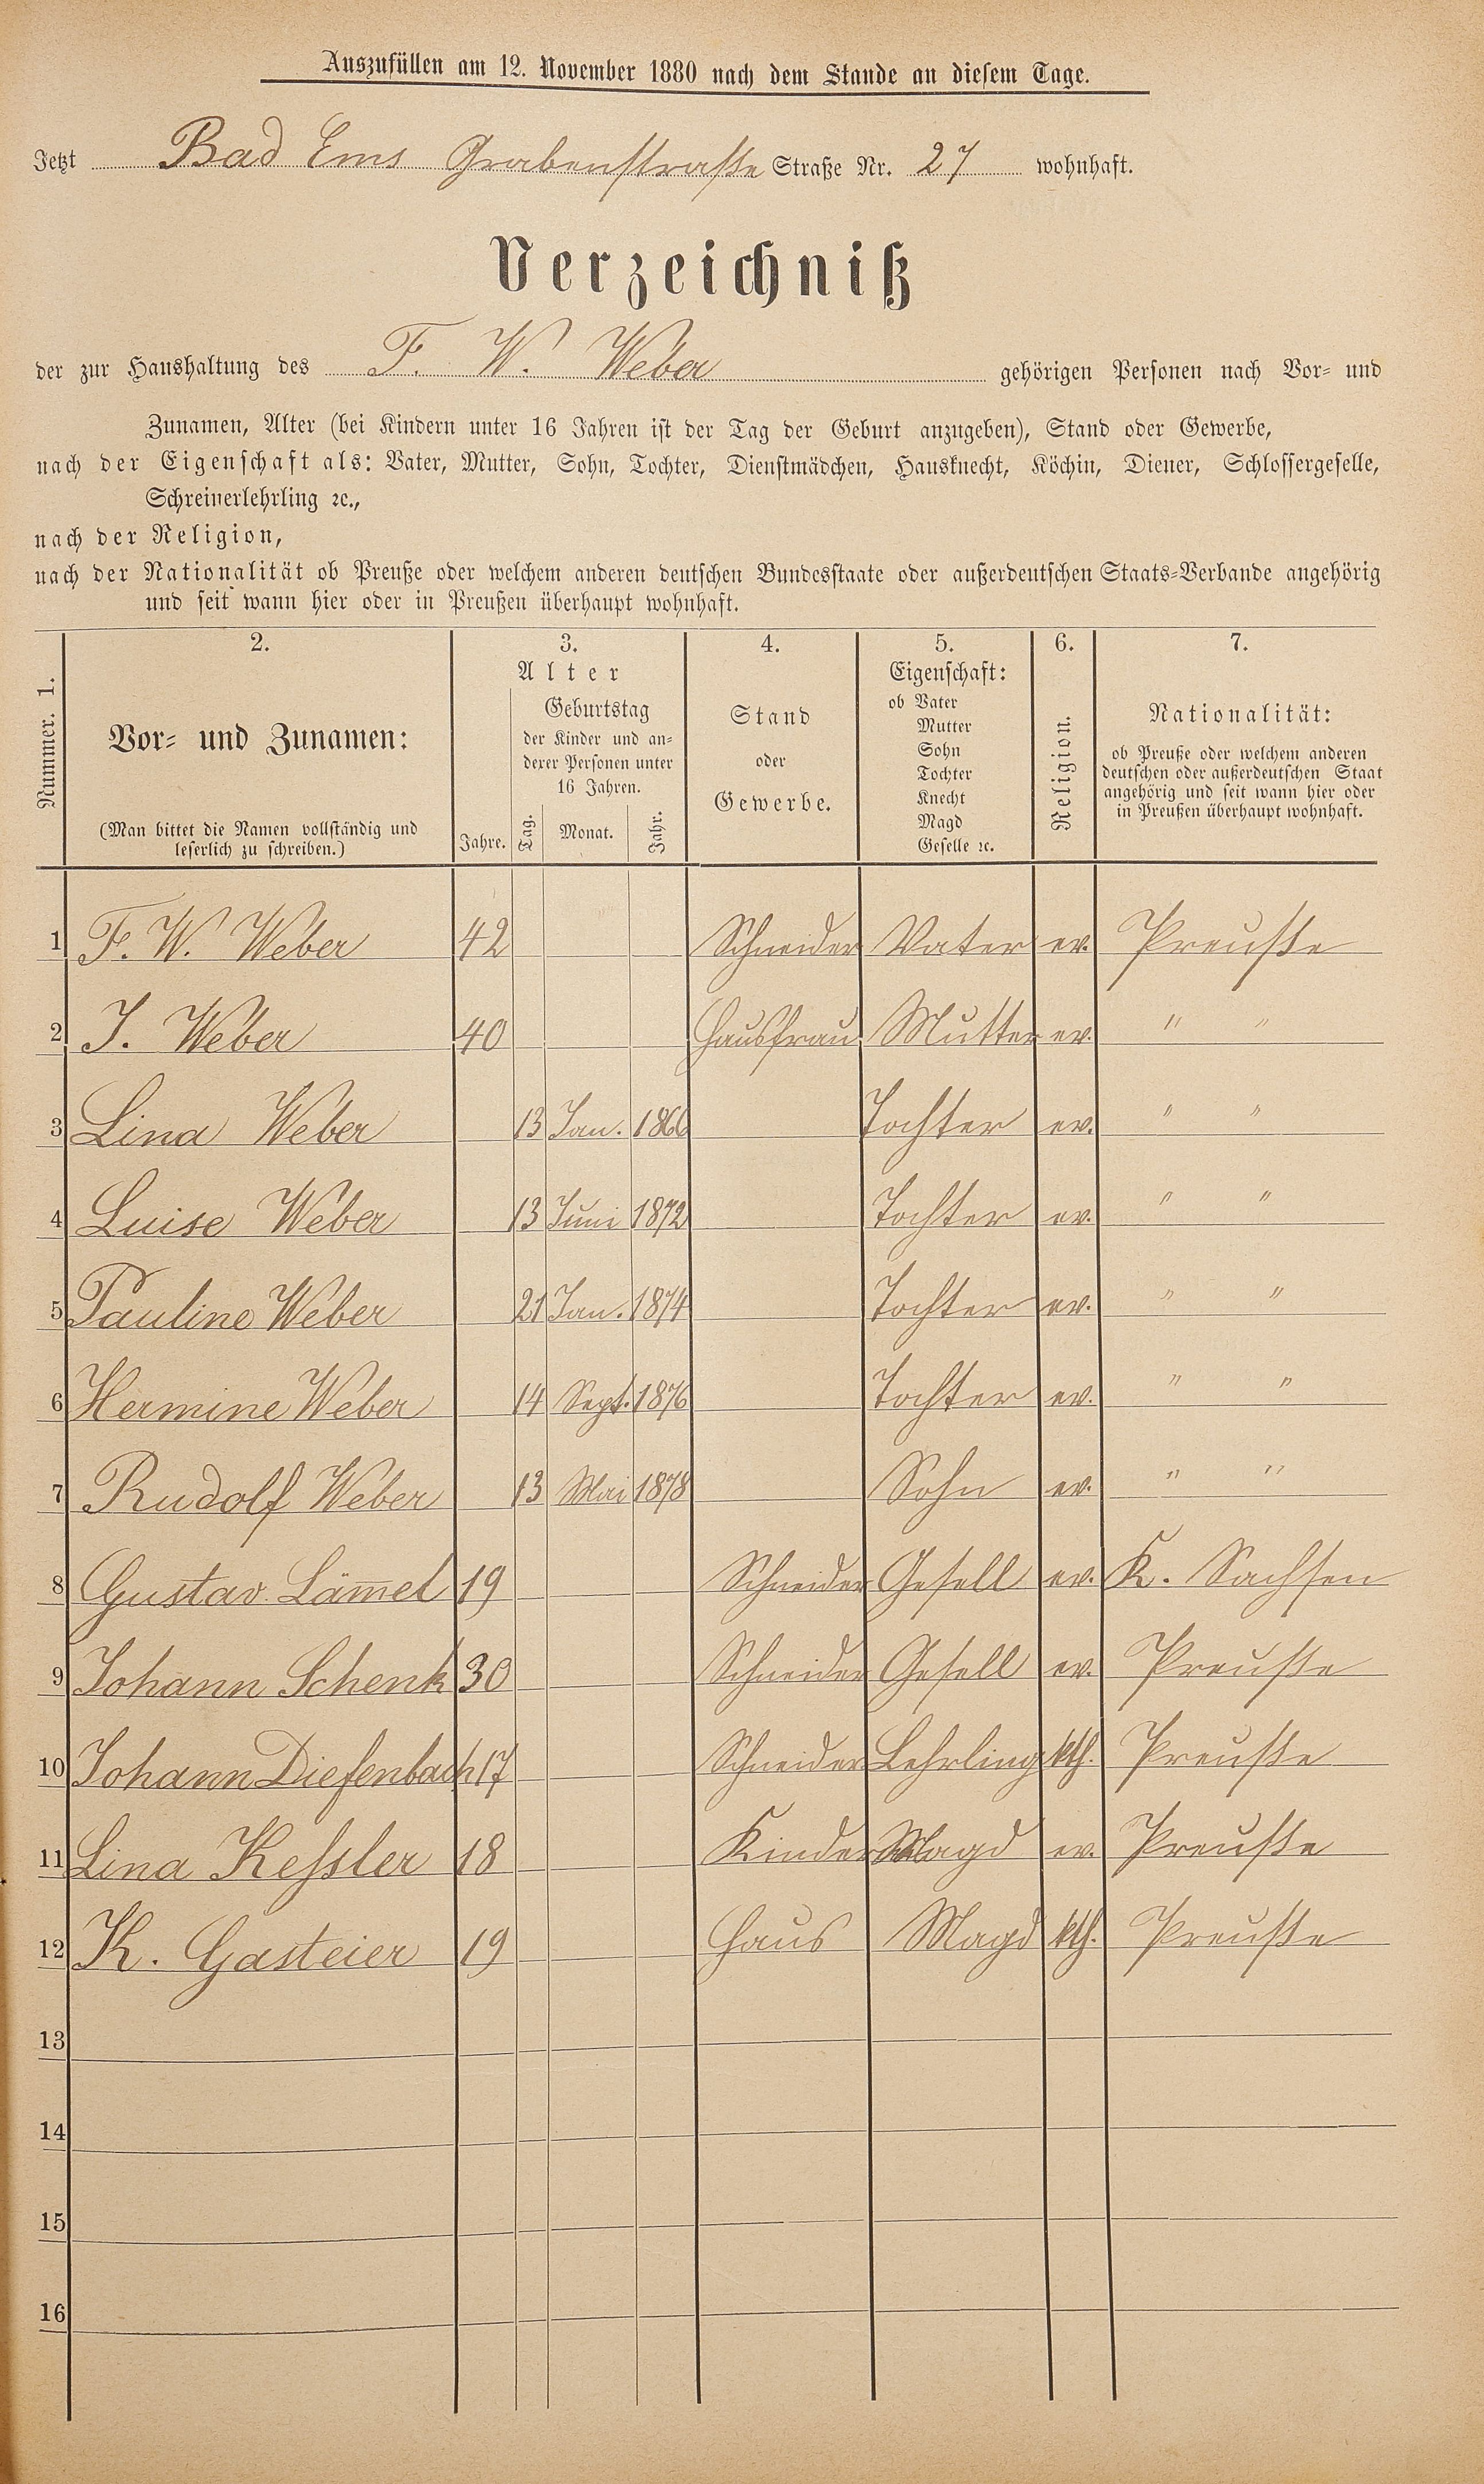 Auszufüllen am 12. November 1880 nach dem Stande an diesem Tage.
Jetzt Bad Ems Grabenstraße Straße Nr. 27 wohnhaft.
Verzeichniß
der zur Haushaltung des F. W. Weber gehörigen Personen nach Vor- und
Zunamen, Alter (bei Kindern unter 16 Jahren ist der Tag der Geburt anzugeben), Stand oder Gewerbe,
nach der Eigenschaft als: Vater, Mutter, Sohn, Tochter, Dienstmädchen, Hausknecht, Köchin, Diener, Schlossergeselle,
Schreinerlehrling ꝛc.,
nach der Religion,
nach der Nationalität ob Preuße oder welchem anderen deutschen Bundesstaate oder außerdeutschen Staats-Verbande angehörig
und seit wann hier oder in Preußen überhaupt wohnhaft.
Nummer. 1.
2.
Vor- und Zunamen:
(Man bittet die Namen vollständig und
leserlich zu schreiben.)
3.
Alter
Jahre.
Geburtstag
der Kinder und an-
derer Personen unter
16 Jahren.
Tag. Monat. Jahr.
4.
Stand
oder
Gewerbe.
5.
Eigenschaft:
ob Vater
Mutter
Sohn
Tochter
Knecht
Magd
Geselle ꝛc.
6.
Religion.
7.
Nationalität:
ob Preuße oder welchem anderen
deutschen oder außerdeutschen Staat
angehörig und seit wann hier oder
in Preußen überhaupt wohnhaft.
1 F. W. Weber 42 Schneider Vater ev. Preuße
2 J. Weber 40 Hausfrau Mutter ev. " "
3 Lina Weber 13 Jan. 1866 Tochter ev. " "
4 Luise Weber 13 Juni 1872 Tochter ev. " "
5 Pauline Weber 21 Jan. 1874 Tochter ev. " "
6 Hermine Weber 14 Sept. 1876 Tochter ev. " "
7 Rudolf Weber 13 Mai 1878 Sohn ev. " "
8 Gustav Läm̅el 19 Schneider Gesell ev. K. Sachsen
9 Johann Schenk 30 Schneider Gesell ev. Preuße
10 Johann Diefenbach 17 Schneider Lehrling kth. Preuße
11 Lina Keſsler 18 Kinder Magd ev. Preuße
12 K. Gasteier 19 Haus Magd kth. Preuße
13
14
15
16